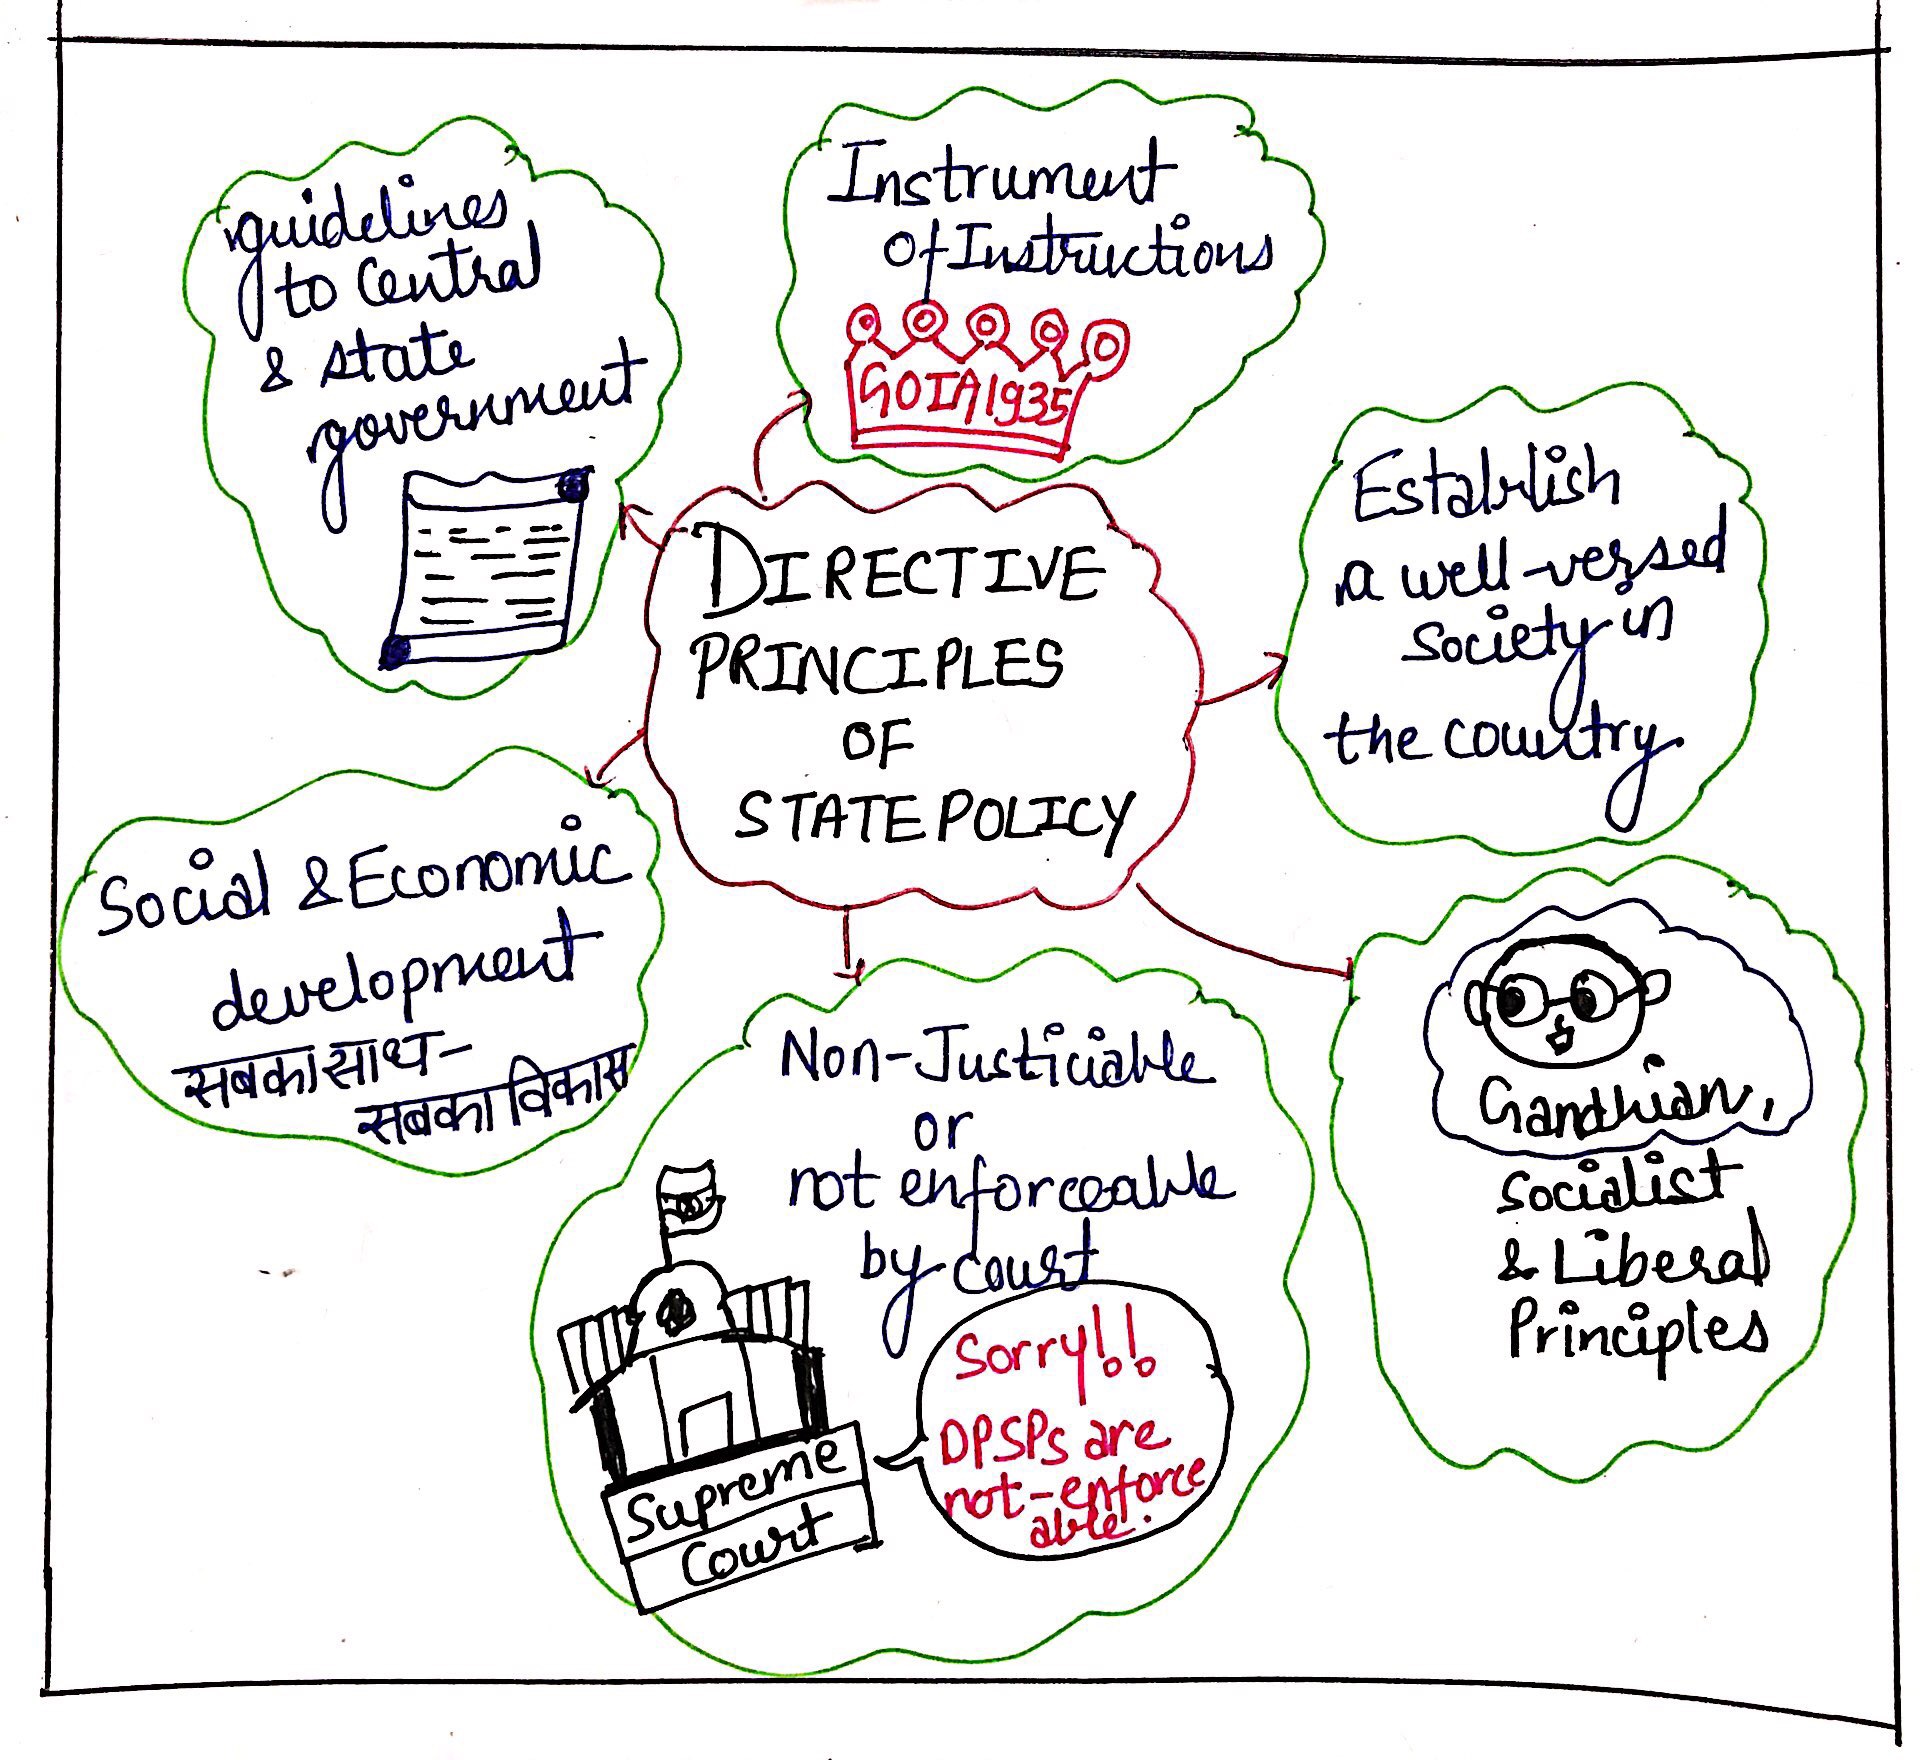 guidelines
to Central
& state
government
Instrument
Of Instructions
GOIA1935
Establish
a well-versed
society in
the country
DIRECTIVE
PRINCIPLES
OF
STATE POLICY
Social & Economic
development
सबका साथ-
सबका विकास
Non-Justiciable
or
not enforceable
by court
Sorry!!
DPSPs are
not-enforce
able.
Supreme
Court
Gandhian,
Socialist
& Liberal
Principles